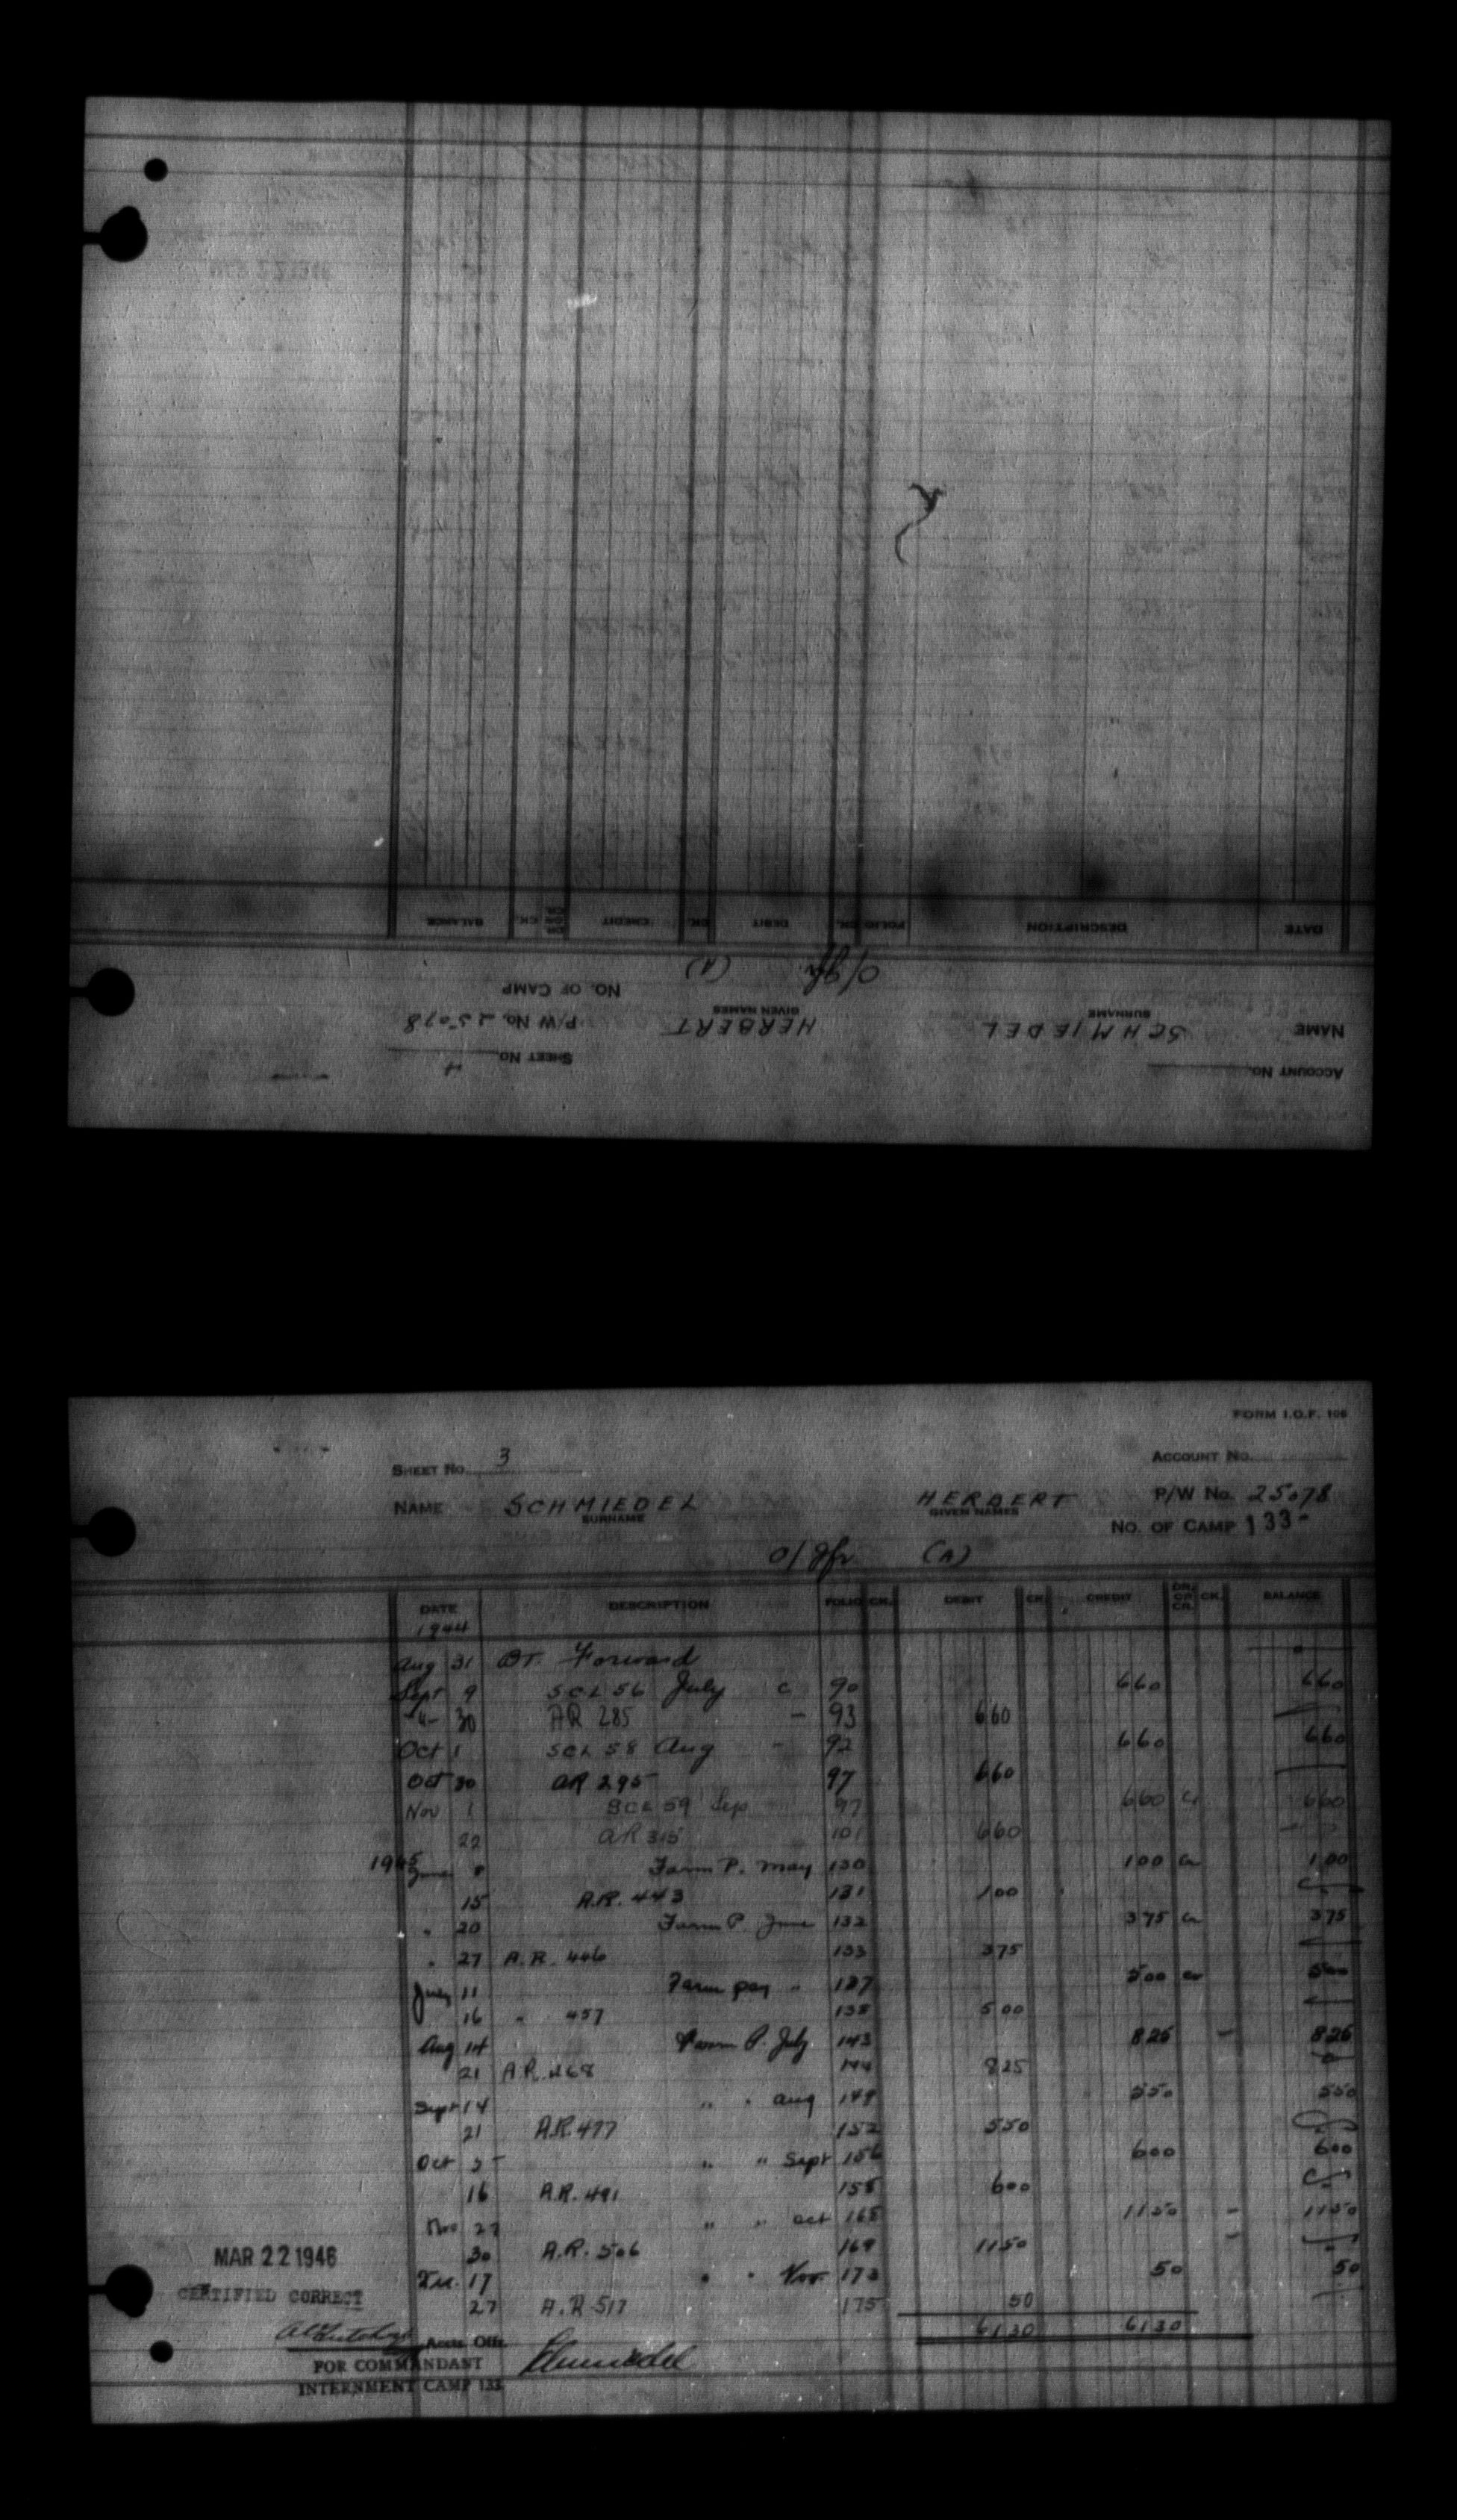 ACCOUNT No.
SHEET No. 4
NAME SCHMIEDEL HERBERT P/W No. 25078
SURNAME GIVEN NAMES
NO. OF CAMP
O/gfr. (A)
DATE DESCRIPTION FOLIO CK. DEBIT CK. CREDIT DR. OR CR. CK. BALANCE
FORM I.O.F. 106
SHEET No. 3 ACCOUNT No.
NAME SCHMIEDEL HERBERT P/W No. 25078
SURNAME GIVEN NAMES
NO. OF CAMP 133-
O/gfr (A)
DATE DESCRIPTION FOLIO CK. DEBIT CK. CREDIT DR. OR CR. CK. BALANCE
1944
Aug 31 BT. Forward
Sept 9 SCL 56 July c 90 660 660
-"- 30 AR 285 - 93 660
Oct 1 SCL 58 Aug - 92 660 660
Oct 30 AR 295 97 660
Nov 1 SCL 59 Sep 97 660 Cr 660
22 AR 315 101 660
1945 June 8 Farm P. May 130 100 Cr 100
15 A.R. 443 131 100
" 20 Farm P. June 132 375 Cr 375
" 27 A.R. 446 133 375
July 11 Farm pay " 137 500 Cr 500
16 " 457 138 500
Aug 14 Farm P. July 143 825 - 825
21 A.R. 468 144 825
Sept 14 " " Aug 149 550 550
21 A.R. 477 152 550
Oct 5 " " Sept 156 600 600
16 A.R. 491 158 600
Nov 27 " " Oct 168 1150 - 1150
30 A.R. 506 169 1150 -
Dec. 17 " " Nov. 173 50 50
27 A.R. 517 175 50
6130 6130
MAR 22 1946
CERTIFIED CORRECT
Accts. Offr.
FOR COMMANDANT Schmiedel
INTERNMENT CAMP 133